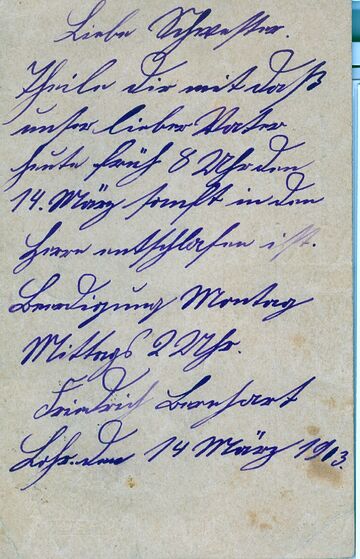 Liebe Schwester.
Theile dir mit daß
unser lieber Vater
heute früh 8 Uhr den
14. März sanft in dem
Herrn entschlafen ist.
Beerdigung Montag
Mittags 2 Uhr.
Friedrich Bernhart
Lohr. den 14 März 1903.